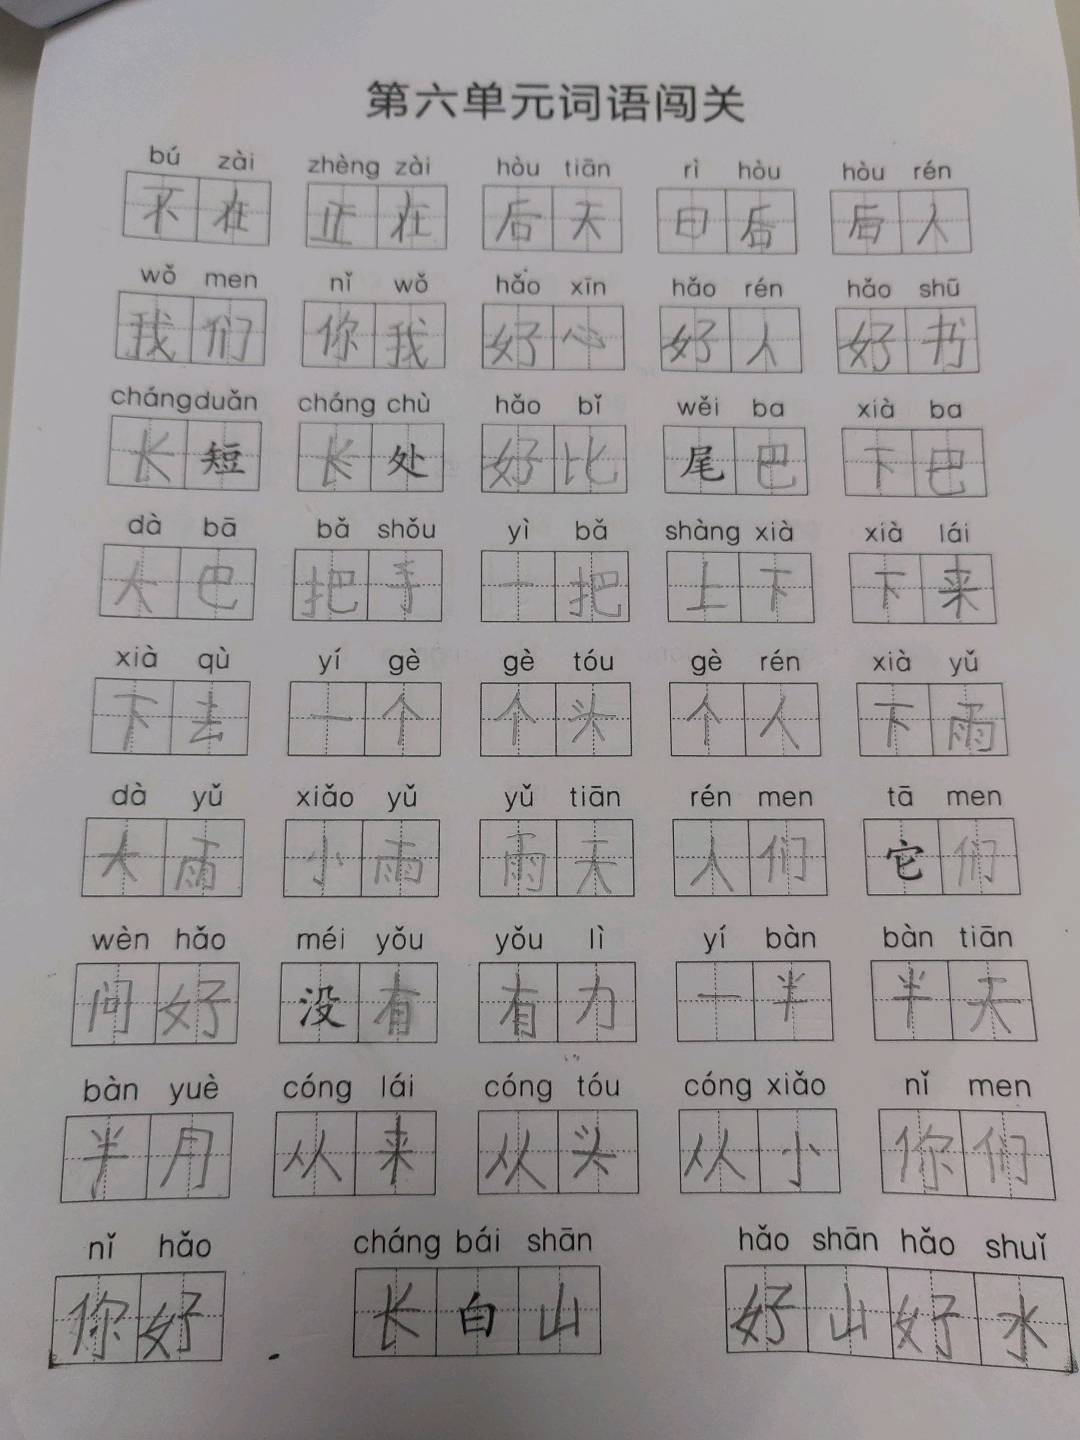 第六单元词语闯关
bú zài zhèng zài hòu tiān rì hòu hòu rén
不在 正在 后天 日后 后人
wǒ men nǐ wǒ hǎo xīn hǎo rén hǎo shū
我们 你我 好心 好人 好书
cháng duǎn cháng chù hǎo bǐ wěi ba xià ba
长短 长处 好比 尾巴 下巴
dà bā bǎ shǒu yì bǎ shàng xià xià lái
大巴 把手 一把 上下 下来
xià qù yí gè gè tóu gè rén xià yǔ
下去 一个 个头 个人 下雨
dà yǔ xiǎo yǔ yǔ tiān rén men tā men
大雨 小雨 雨天 人们 它们
wèn hǎo méi yǒu yǒu lì yí bàn bàn tiān
问好 没有 有力 一半 半天
bàn yuè cóng lái cóng tóu cóng xiǎo nǐ men
半月 从来 从头 从小 你们
nǐ hǎo cháng bái shān hǎo shān hǎo shuǐ
你好 长白山 好山好水